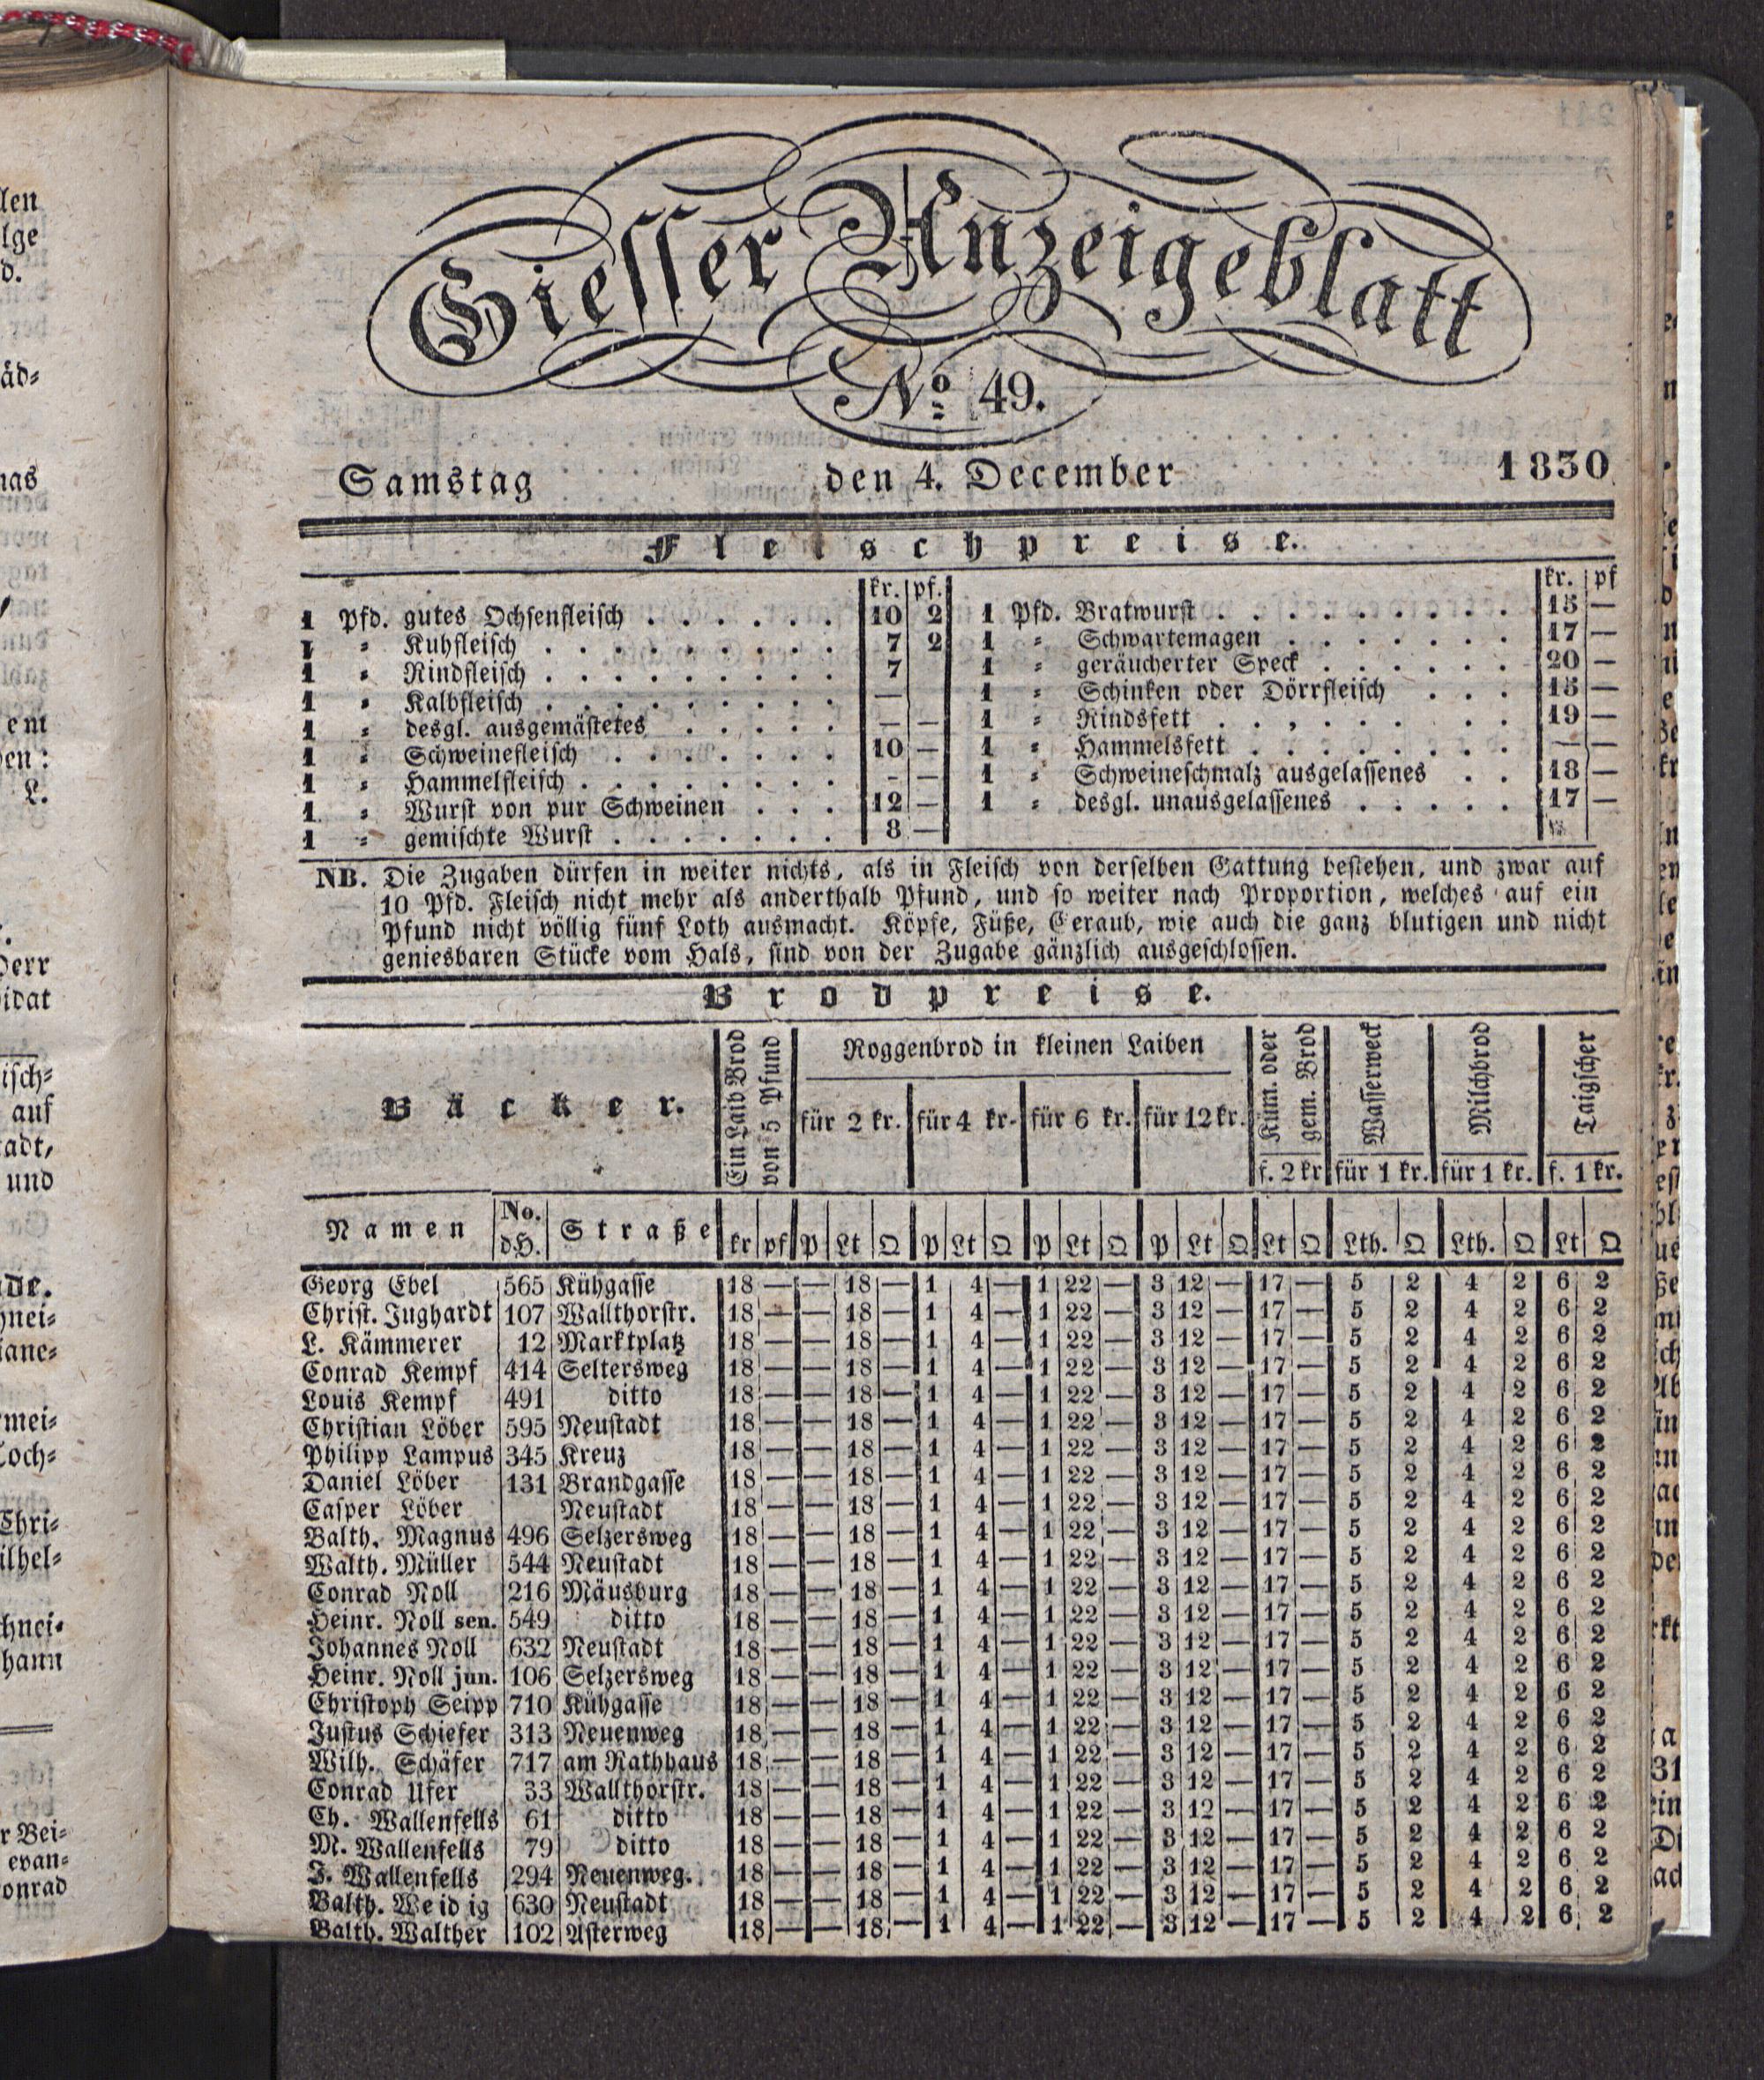 Giesser Anzeigeblatt
No 49.
Samstag den 4. December 1830
Fleischpreise.
kr. pf. kr. pf
1 Pfd. gutes Ochsenfleisch . . . . . . 10 2
1 = Kuhfleisch . . . . . . . . . 7 2
1 = Rindfleisch . . . . . . . . . 7
1 = Kalbfleisch . . . . . . . . . —
1 = desgl. ausgemästetes . . . . . — —
1 = Schweinefleisch . . . . . . . 10 —
1 = Hammelfleisch . . . . . . . . - —
1 = Wurst von pur Schweinen . . . 12 —
1 = gemischte Wurst . . . . . . . 8 —
1 Pfd. Bratwurst . . . . . . . . 15 —
1 = Schwartemagen . . . . . . 17 —
1 = geräucherter Speck . . . . . 20 —
1 = Schinken oder Dörrfleisch . . . 15 —
1 = Rindsfett . . . . . . . . 19 —
1 = Hammelsfett . . . . . . . . — —
1 = Schweineschmalz ausgelassenes . . 18 —
1 = desgl. unausgelassenes . . . . . 17 —
NB. Die Zugaben dürfen in weiter nichts, als in Fleisch von derselben Gattung bestehen, und zwar auf
10 Pfd. Fleisch nicht mehr als anderthalb Pfund, und so weiter nach Proportion, welches auf ein
Pfund nicht völlig fünf Loth ausmacht. Köpfe, Füße, Geraub, wie auch die ganz blutigen und nicht
geniesbaren Stücke vom Hals, sind von der Zugabe gänzlich ausgeschlossen.
Brodpreise.
Bäcker.
Ein Laib Brod
von 5 Pfund
Roggenbrod in kleinen Laiben
für 2 kr. für 4 kr. für 6 kr. für 12 kr.
Küm. oder
gem. Brod
f. 2 kr
Wasserweck
für 1 kr.
Milchbrod
für 1 kr.
Taigscher
f. 1 kr.
Namen No. d.H. Straße kr pf P Lt Q P Lt Q P Lt Q P Lt Q Lt Q Lth. Q Lth. Q Lt Q
Georg Ebel 565 Kühgasse 18 — — 18 — 1 4 — 1 22 — 3 12 — 17 — 5 2 4 2 6 2
Christ. Jughardt 107 Wallthorstr. 18 — — 18 — 1 4 — 1 22 — 3 12 — 17 — 5 2 4 2 6 2
L. Kämmerer 12 Marktplatz 18 — — 18 — 1 4 — 1 22 — 3 12 — 17 — 5 2 4 2 6 2
Conrad Kempf 414 Seltersweg 18 — — 18 — 1 4 — 1 22 — 3 12 — 17 — 5 2 4 2 6 2
Louis Kempf 491 ditto 18 — — 18 — 1 4 — 1 22 — 3 12 — 17 — 5 2 4 2 6 2
Christian Löber 595 Neustadt 18 — — 18 — 1 4 — 1 22 — 3 12 — 17 — 5 2 4 2 6 2
Philipp Lampus 345 Kreuz 18 — — 18 — 1 4 — 1 22 — 3 12 — 17 — 5 2 4 2 6 2
Daniel Löber 131 Brandgasse 18 — — 18 — 1 4 — 1 22 — 3 12 — 17 — 5 2 4 2 6 2
Casper Löber Neustadt 18 — — 18 — 1 4 — 1 22 — 3 12 — 17 — 5 2 4 2 6 2
Balth. Magnus 496 Selzersweg 18 — — 18 — 1 4 — 1 22 — 3 12 — 17 — 5 2 4 2 6 2
Walth. Müller 544 Neustadt 18 — — 18 — 1 4 — 1 22 — 3 12 — 17 — 5 2 4 2 6 2
Conrad Noll 216 Mäusburg 18 — — 18 — 1 4 — 1 22 — 3 12 — 17 — 5 2 4 2 6 2
Heinr. Noll sen. 549 ditto 18 — — 18 — 1 4 — 1 22 — 3 12 — 17 — 5 2 4 2 6 2
Johannes Noll 632 Neustadt 18 — — 18 — 1 4 — 1 22 — 3 12 — 17 — 5 2 4 2 6 2
Heinr. Noll jun. 106 Selzersweg 18 — — 18 — 1 4 — 1 22 — 3 12 — 17 — 5 2 4 2 6 2
Christoph Seipp 710 Kühgasse 18 — — 18 — 1 4 — 1 22 — 3 12 — 17 — 5 2 4 2 6 2
Justus Schiefer 313 Neuenweg 18 — — 18 — 1 4 — 1 22 — 3 12 — 17 — 5 2 4 2 6 2
Wilh. Schäfer 717 am Rathhaus 18 — — 18 — 1 4 — 1 22 — 3 12 — 17 — 5 2 4 2 6 2
Conrad Ufer 33 Wallthorstr. 18 — — 18 — 1 4 — 1 22 — 3 12 — 17 — 5 2 4 2 6 2
Ch. Wallenfells 61 ditto 18 — — 18 — 1 4 — 1 22 — 3 12 — 17 — 5 2 4 2 6 2
M. Wallenfells 79 ditto 18 — — 18 — 1 4 — 1 22 — 3 12 — 17 — 5 2 4 2 6 2
J. Wallenfells 294 Neuenweg. 18 — — 18 — 1 4 — 1 22 — 3 12 — 17 — 5 2 4 2 6 2
Balth. Weidig 630 Neustadt 18 — — 18 — 1 4 — 1 22 — 3 12 — 17 — 5 2 4 2 6 2
Balth. Walther 102 Asterweg 18 — — 18 — 1 4 — 1 22 — 3 12 — 17 — 5 2 4 2 6 2